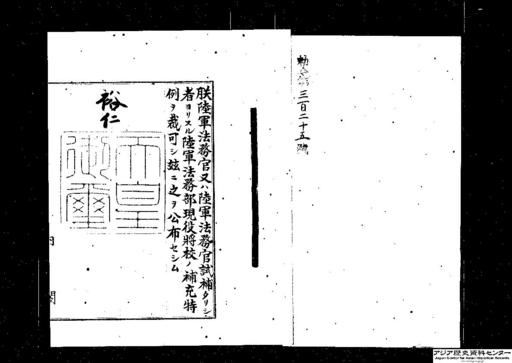 勅令第三百二十五號
朕陸軍法務官又ハ陸軍法務官試補タリシ
者ヨリスル陸軍法務部現役將校ノ補充特
例ヲ裁可シ玆ニ之ヲ公布セシム
裕仁
天皇
御璽
内閣
アジア歴史資料センター
Japan Center for Asian Historical Records